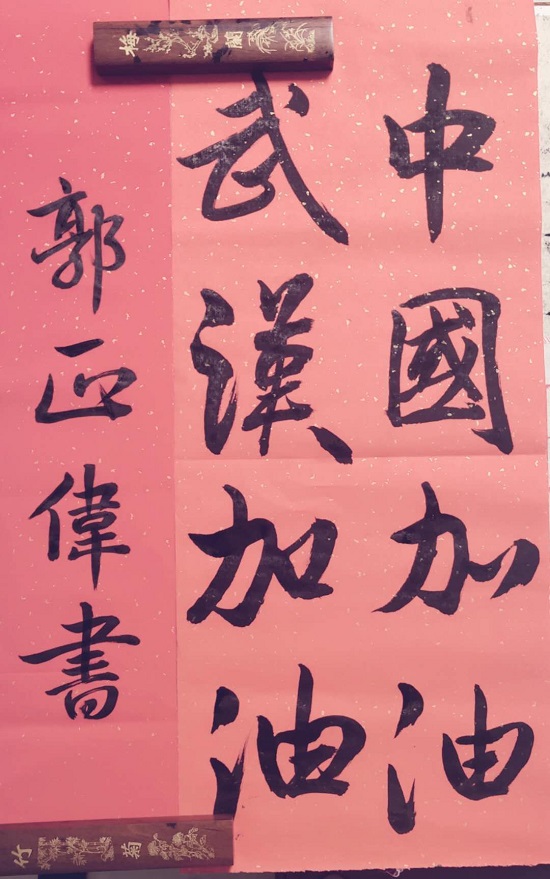 中國加油
武漢加油
郭正偉書
梅蘭
竹菊